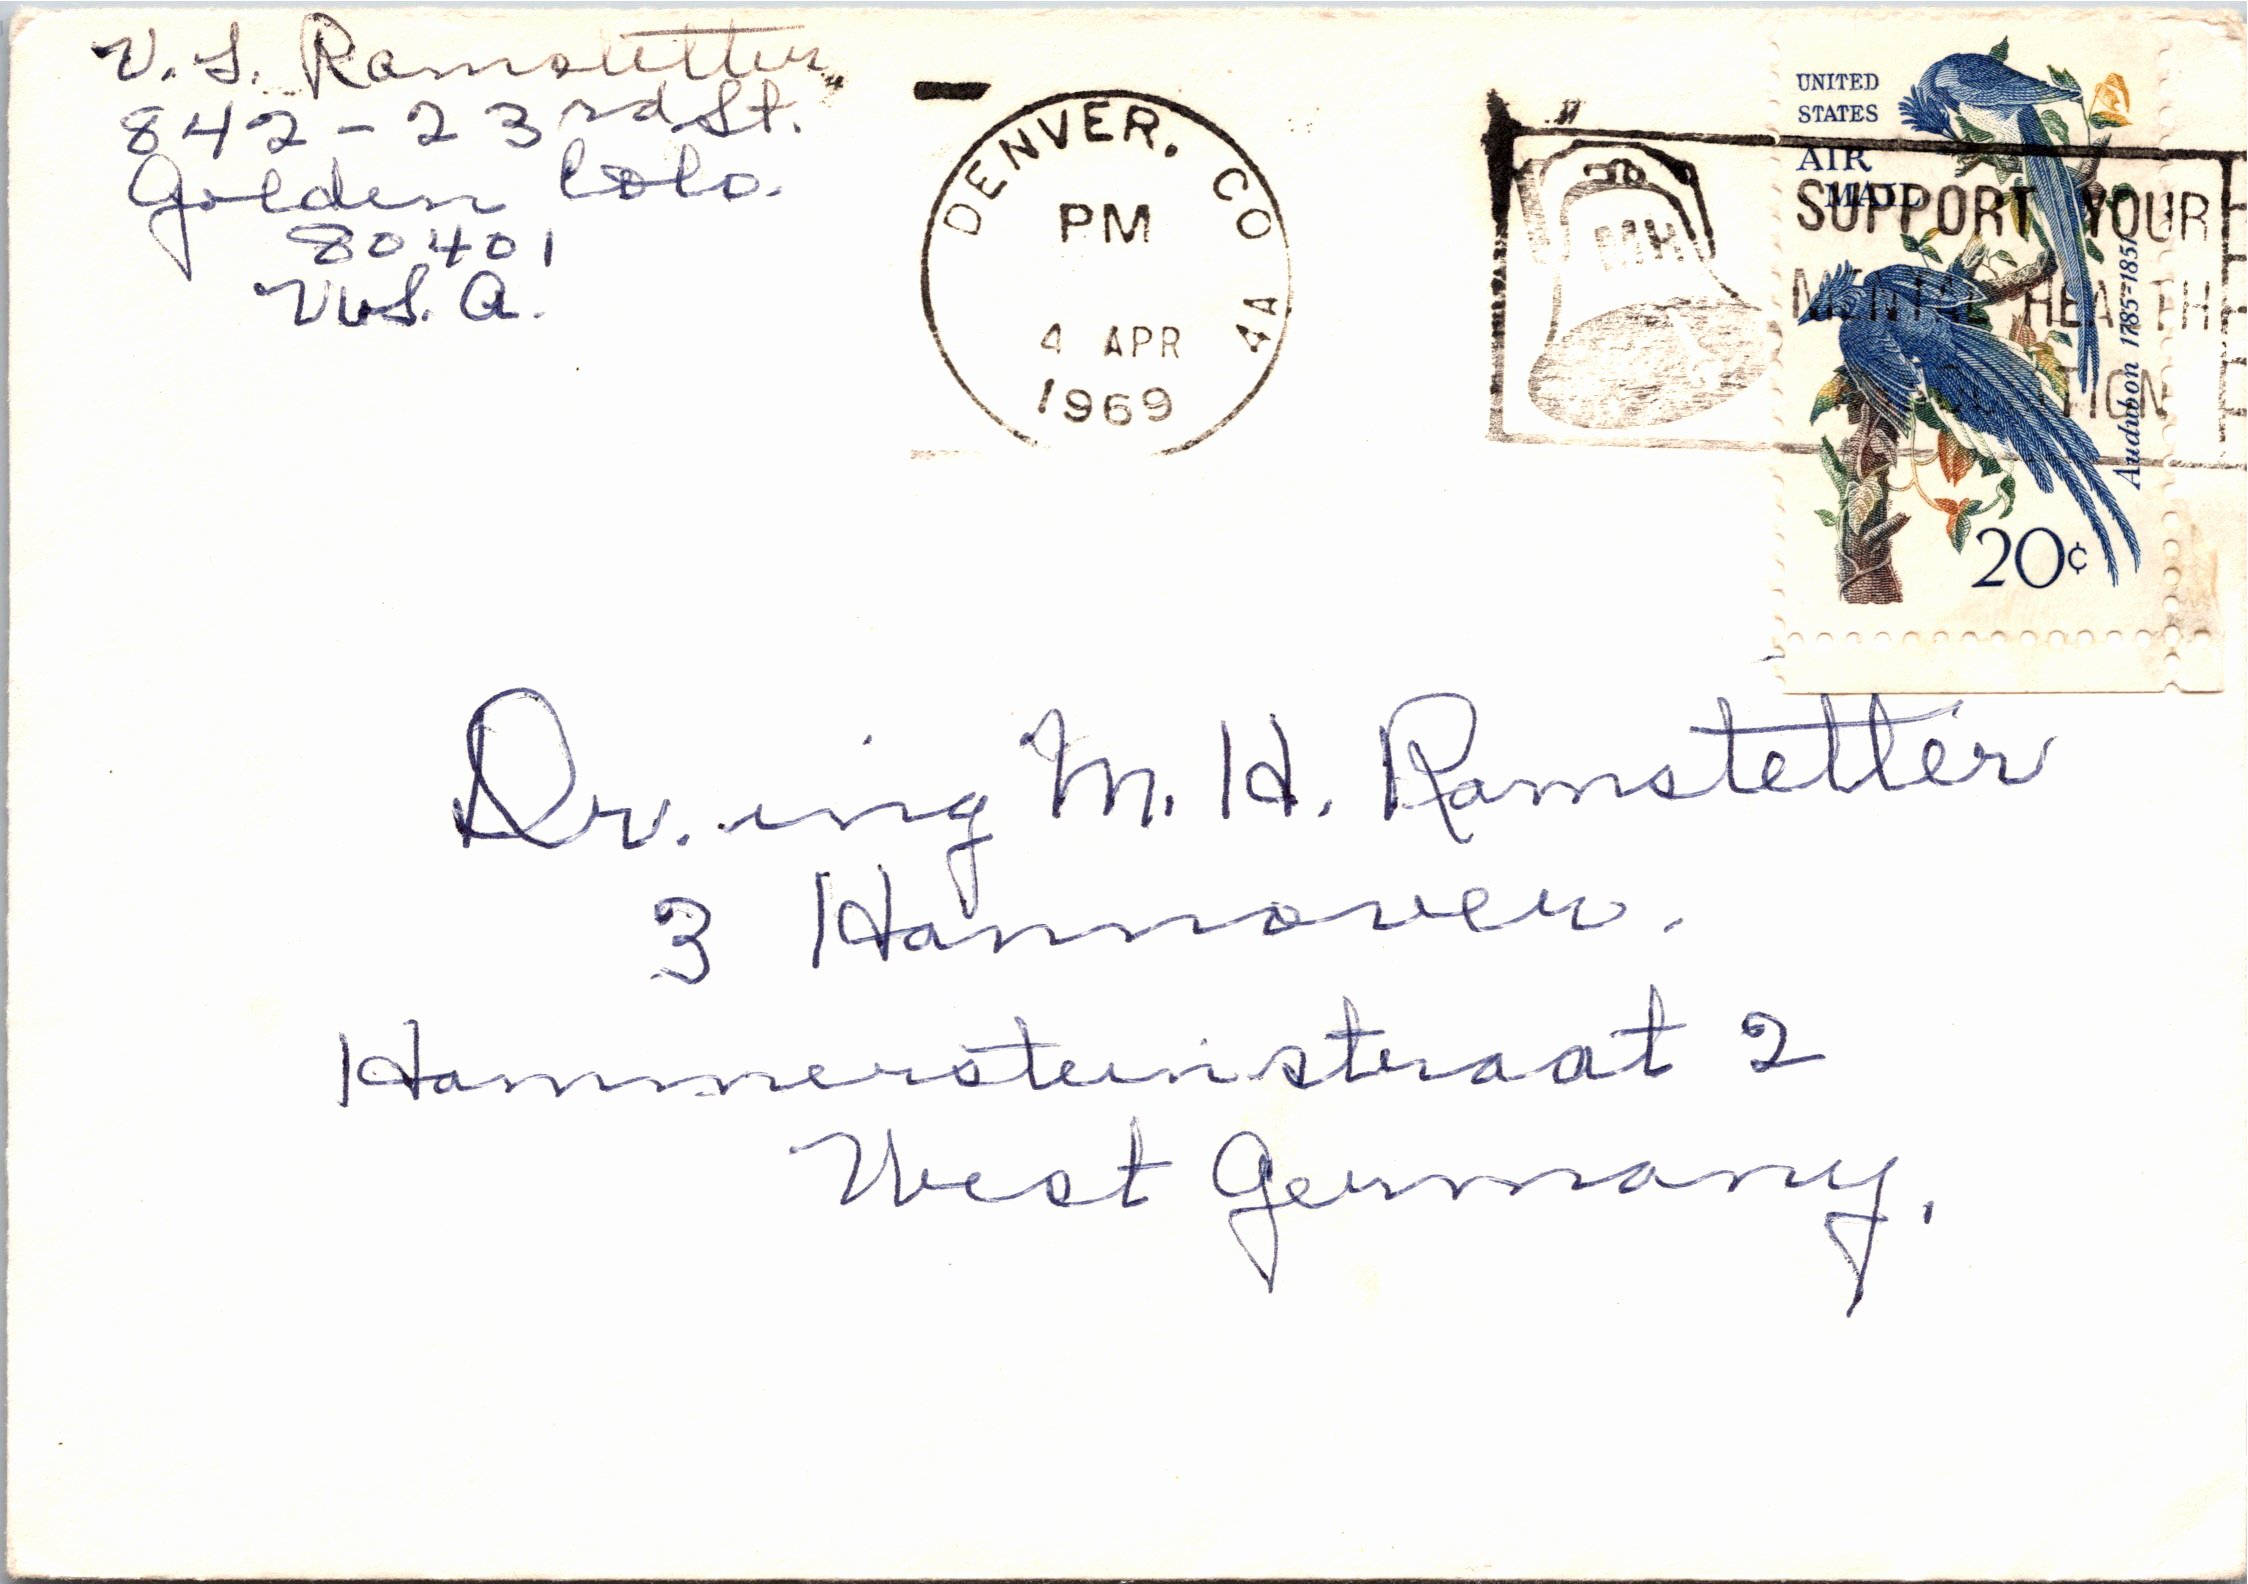 V. S. Ramstetter
842 - 23rd St.
Golden Colo.
80401
U.S.A.
DENVER, CO
PM
4 APR
1969
4A
MH
SUPPORT YOUR
MENTAL HEALTH
UNITED
STATES
AIR
MAIL
Audubon 1785-1851
20¢
Dr. ing M. H. Ramstetter
3 Hannover.
Hammersteinstraat 2
West Germany.